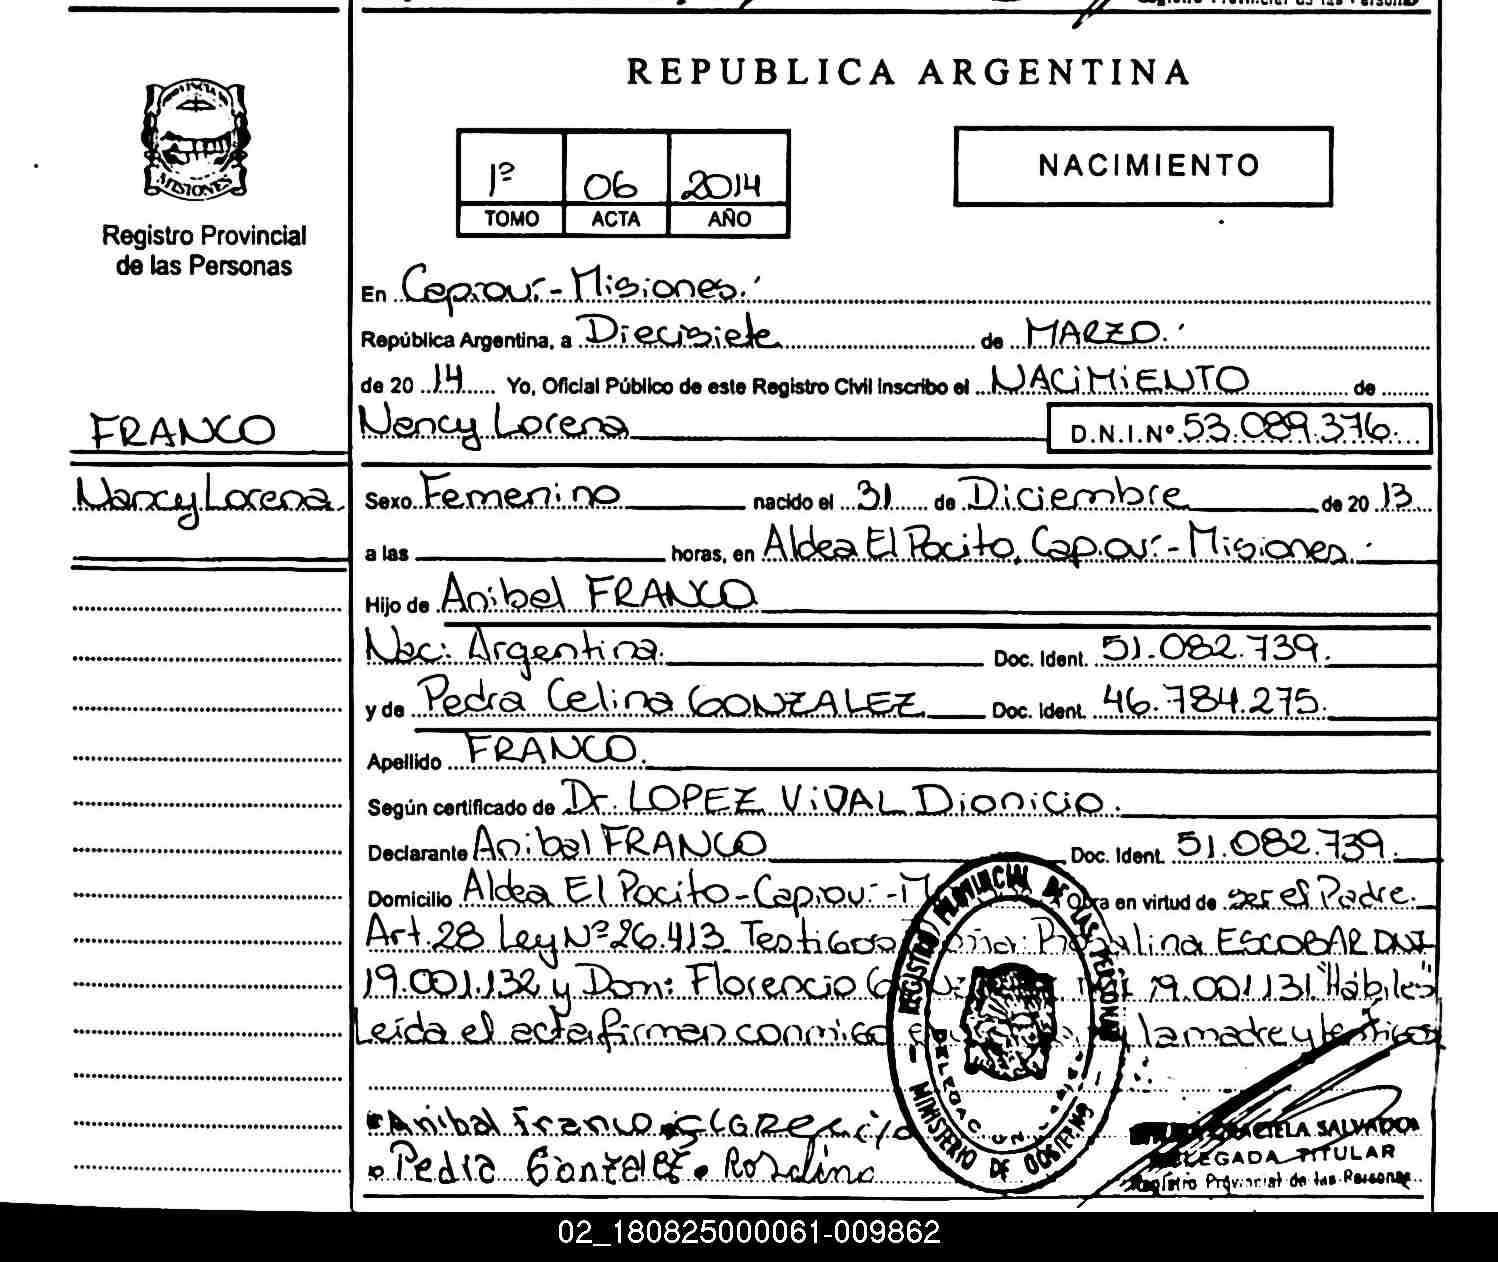 REPUBLICA ARGENTINA
PROVINCIA DE MISIONES
Registro Provincial
de las Personas
1º 06 2014
TOMO ACTA AÑO
NACIMIENTO
En Capioví - Misiones.
República Argentina, a Diecisiete de MARZO.
de 2014 Yo, Oficial Público de este Registro Civil Inscribo el NACIMIENTO de
FRANCO
Nancy Lorena D.N.I.Nº 53.089.376.
Nancy Lorena
Sexo Femenino nacido el 31 de Diciembre de 2013
a las horas, en Aldea El Pocito, Capioví - Misiones.
Hijo de Anibal FRANCO
Nac: Argentina. Doc. Ident. 51.082.739.
y de Pedra Celina GONZALEZ Doc. Ident. 46.784.275.
Apellido FRANCO.
Según certificado de Dr. LOPEZ ViDAL Dionicio.
Declarante Anibal FRANCO Doc. Ident. 51.082.739.
Domicilio Aldea El Pocito - Capioví - Obra en virtud de ser el Padre.
Art. 28 Ley Nº 26.413 Testigos ESCOBAR DNI
19.001.132 y Don: Florencio 19.001131. "Hábiles"
Leída el acta firman conmigo la madre y testigos
Anibal Franco
Pedra Gonzalez Rosalina
REGISTRO PROVINCIAL DE LAS PERSONAS
MINISTERIO DE GOBIERNO
GRACIELA SALVADOR
DELEGADA TITULAR
Registro Provincial de las Personas
02_180825000061-009862